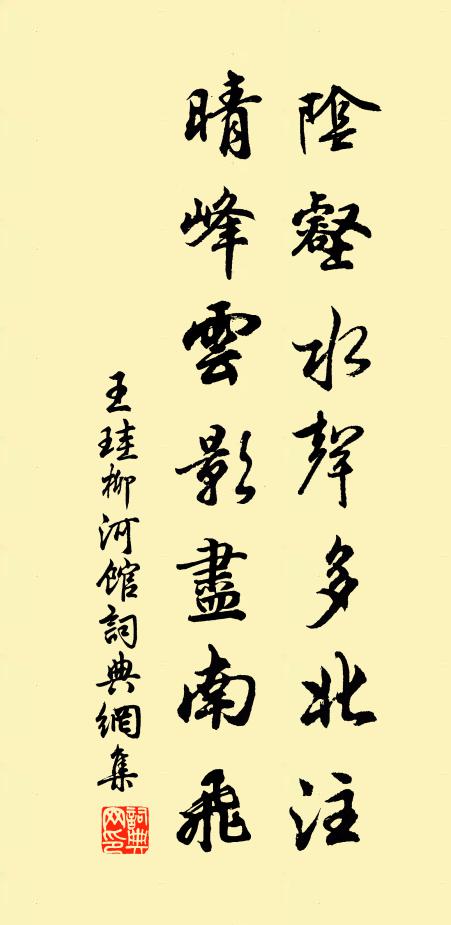 陰壑水聲多北注
晴峰雲影盡南飛
王珪柳河館詞典網集
詞典網印